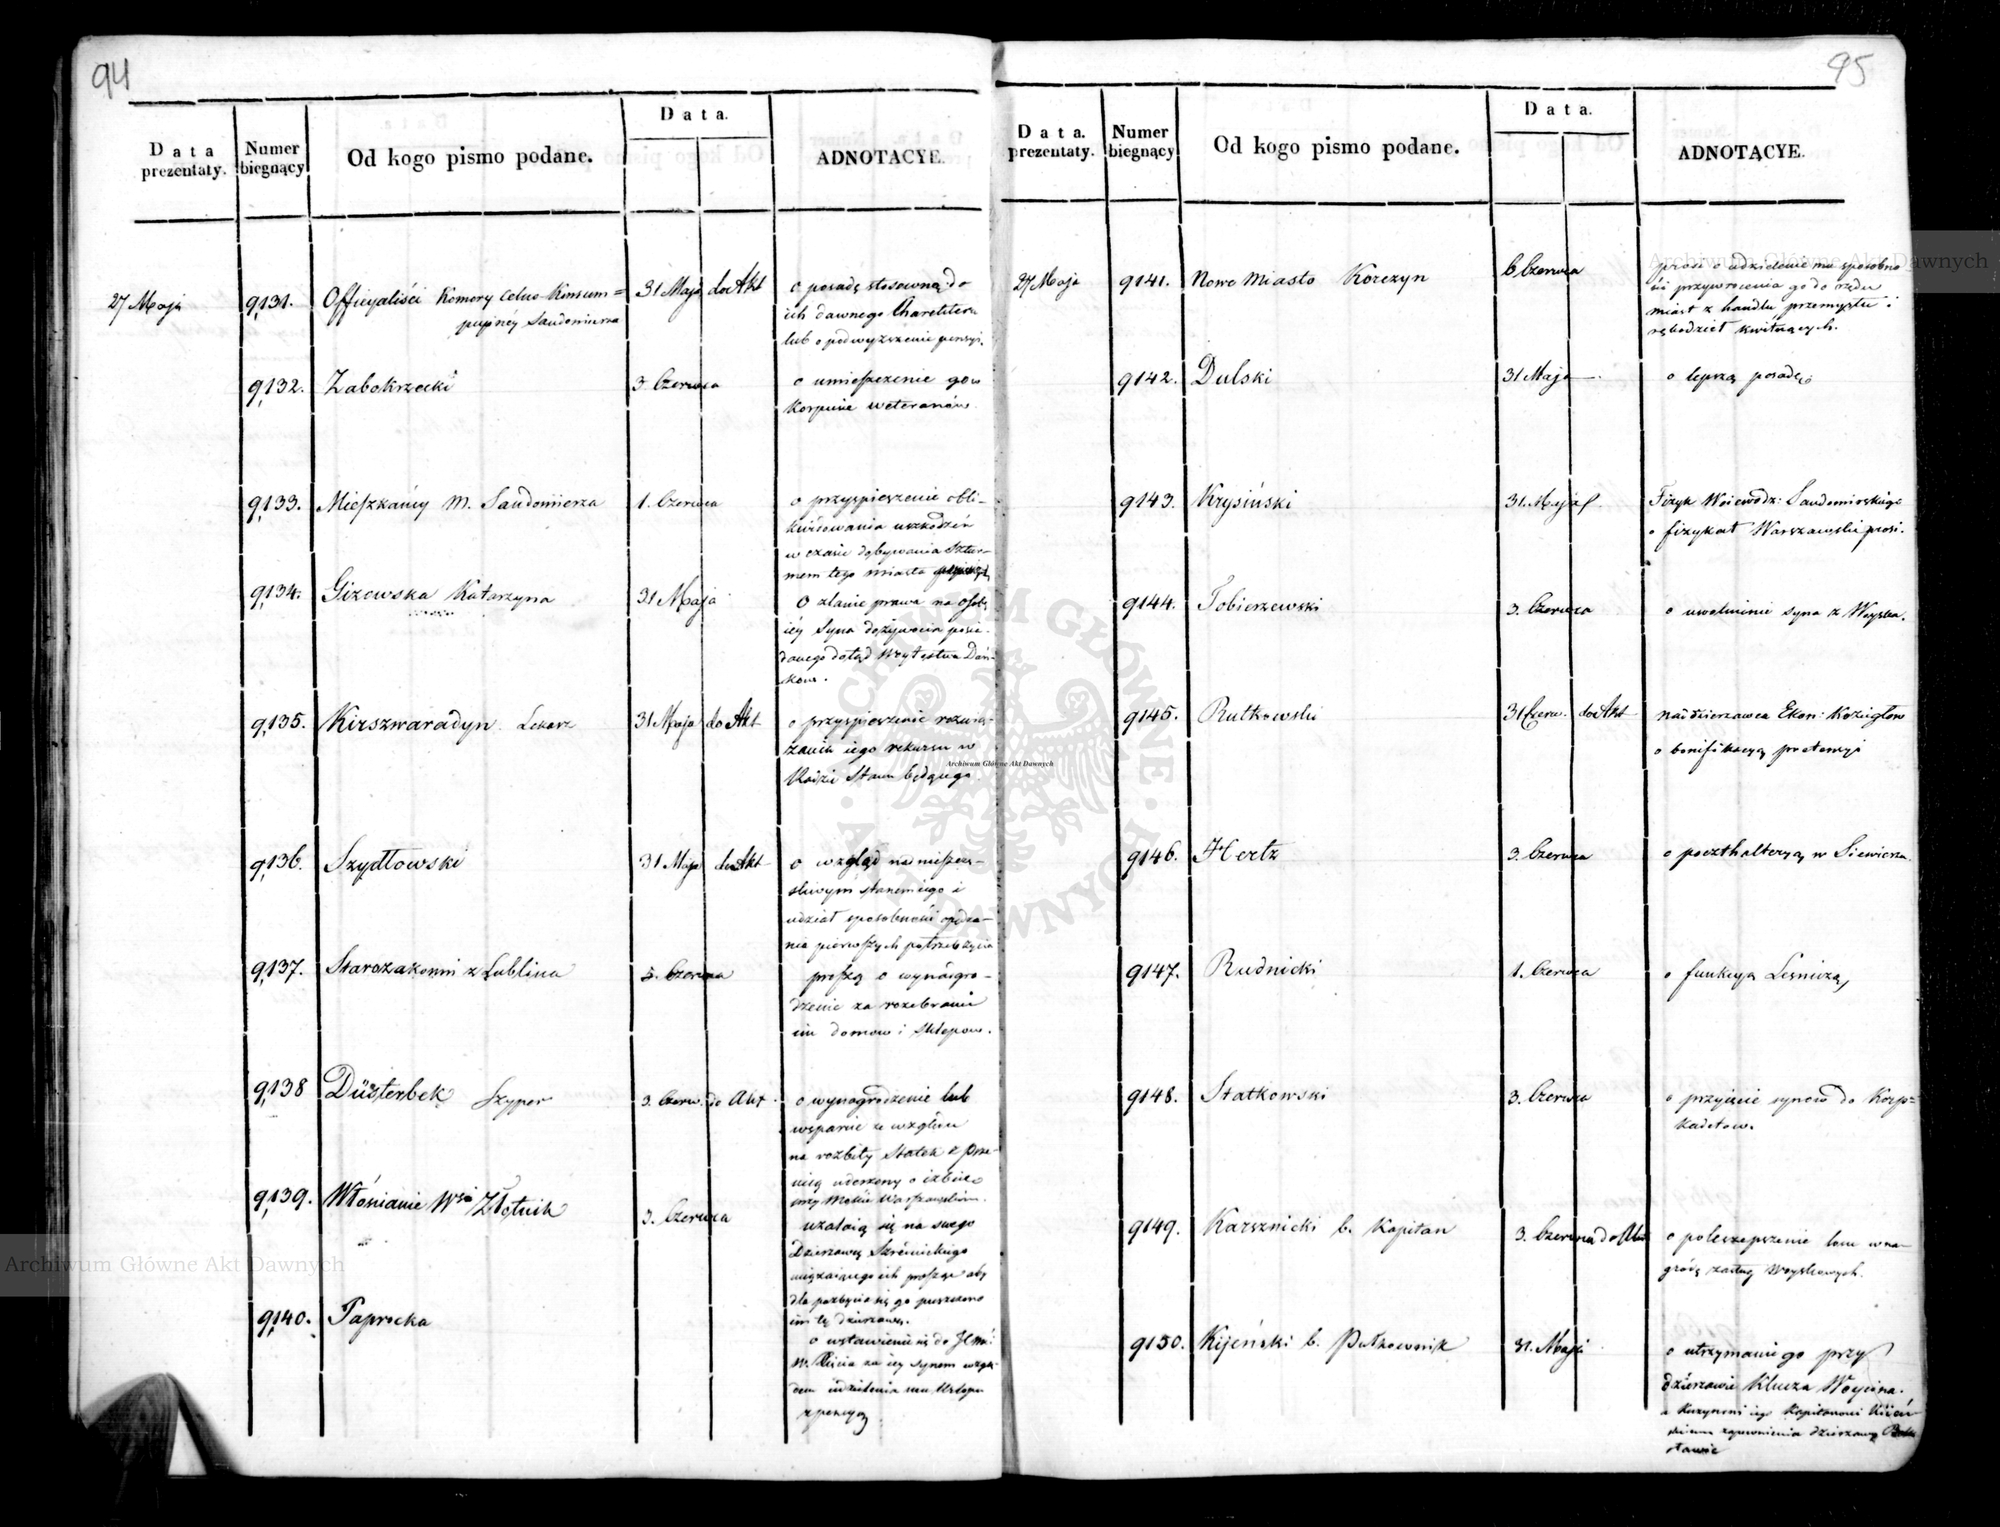 94
Data prezentaty.
Numer biegnący
Od kogo pismo podane.
Data.
ADNOTACYE.
27 Maja
9,131.
Officyaliści Komory Celno-Konsum=
pcyinéy Sandomierza
31 Maja do Akt
o posadę stosowną do
ich dawnego Charakteru
lub o podwyższenie pensyi.
9,132.
Zabokrzecki
3. Czerwca
o umieszczenie go w
Korpusie weteranów
9,133.
Mieszkańcy M. Sandomierza
1. Czerwca
o przyspieszenie obli-
kwidowania uszkodzeń
w czasie dobywania Sztur-
mem tego miasta
9,134.
Gizewska Katarzyna
31 Maja
O zlanie prawa na osobę
iéy Syna dożywocia posia-
danego dotąd Woytostwa Dań-
kow.
9,135.
Kirszwaradyn Lekarz
31 Maja do Akt
o przyspieszenie rozwią-
zania iego rekursu w
Radzie Stanu będącego
9,136.
Szydłowski
31 Maja do Akt
o wzgląd nad nieszczę-
śliwym stanem iego i
udział sposobności opędza-
nia pierwszych potrzeb życia
9,137.
Starozakonni z Lublina
5. Czerwca
proszą o wynagro-
dzenie za rozebranie
im domow i sklepow.
9,138
Düsterbek Szyper
3. Czerw. do Akt.
o wynagrodzenie lub
wsparcie ze względu
na rozbity Statek z psze-
nicą uderzony o izbice
przy Moście Warszawskim.
9,139.
Włościanie Wsi Złotnik
3. Czerwca
użalaią się na swego
Dzierzawcę Skrzénickiego
prosząc aby
dla pozbycia się go puszczono
im tę dzierzawę.
9,140.
Paprocka
o wstawienie się do
za iéy synem wzglę-
dem udzielenia mu Urlopu
z pensyą
95
Data. prezentaty.
Numer biegnący
Od kogo pismo podane.
Data.
ADNOTACYE.
27 Maja
9141.
Nowe Miasto Korczyn
6 Czerwca
prosi o udzielenie mu sposobno
ści przywrócenia go do rzędu
miast z handlu przemysłu i
rękodzieł kwitnących.
9142.
Dulski
31 Maja
o lepszą posadę
9143.
Krysiński
31. Maja
Fizyk Woiewodz: Sandomirskiego
o fizykat Warszawski prosi.
9144.
Tobierzewski
3. Czerwca
o uwolnienie syna z Woyska.
9145.
Rutkowski
31 Czerw. do Akt
naddzierzawca Ekon: Koziegłow
o bonifikacyą pretensyi
9146.
Hertz
3. Czerwca
o poczthalteryą w Siewierzu
9147.
Rudnicki
1. Czerwca
o funkcyą Leśniczą
9148.
Statkowski
3. Czerwca
o przyięcie synow do Korp=
Kadetow.
9149.
Karsznicki b. Kapitan
3. Czerwca do Akt
o polepszenie losu w na-
grodę zasług Woyskowych.
9150.
Kijeński b. Pułkownik
31. Maja
o utrzymanie go przy
dzierzawie Klucza Woycina.
a Kuzynowi iego Kapitanowi Kijeń
skiemu zapewnienia dzierzawy
Archiwum Główne Akt Dawnych
Archiwum Główne Akt Dawnych
Archiwum Główne Akt Dawnych
ARCHIWUM GŁÓWNE AKT DAWNYCH